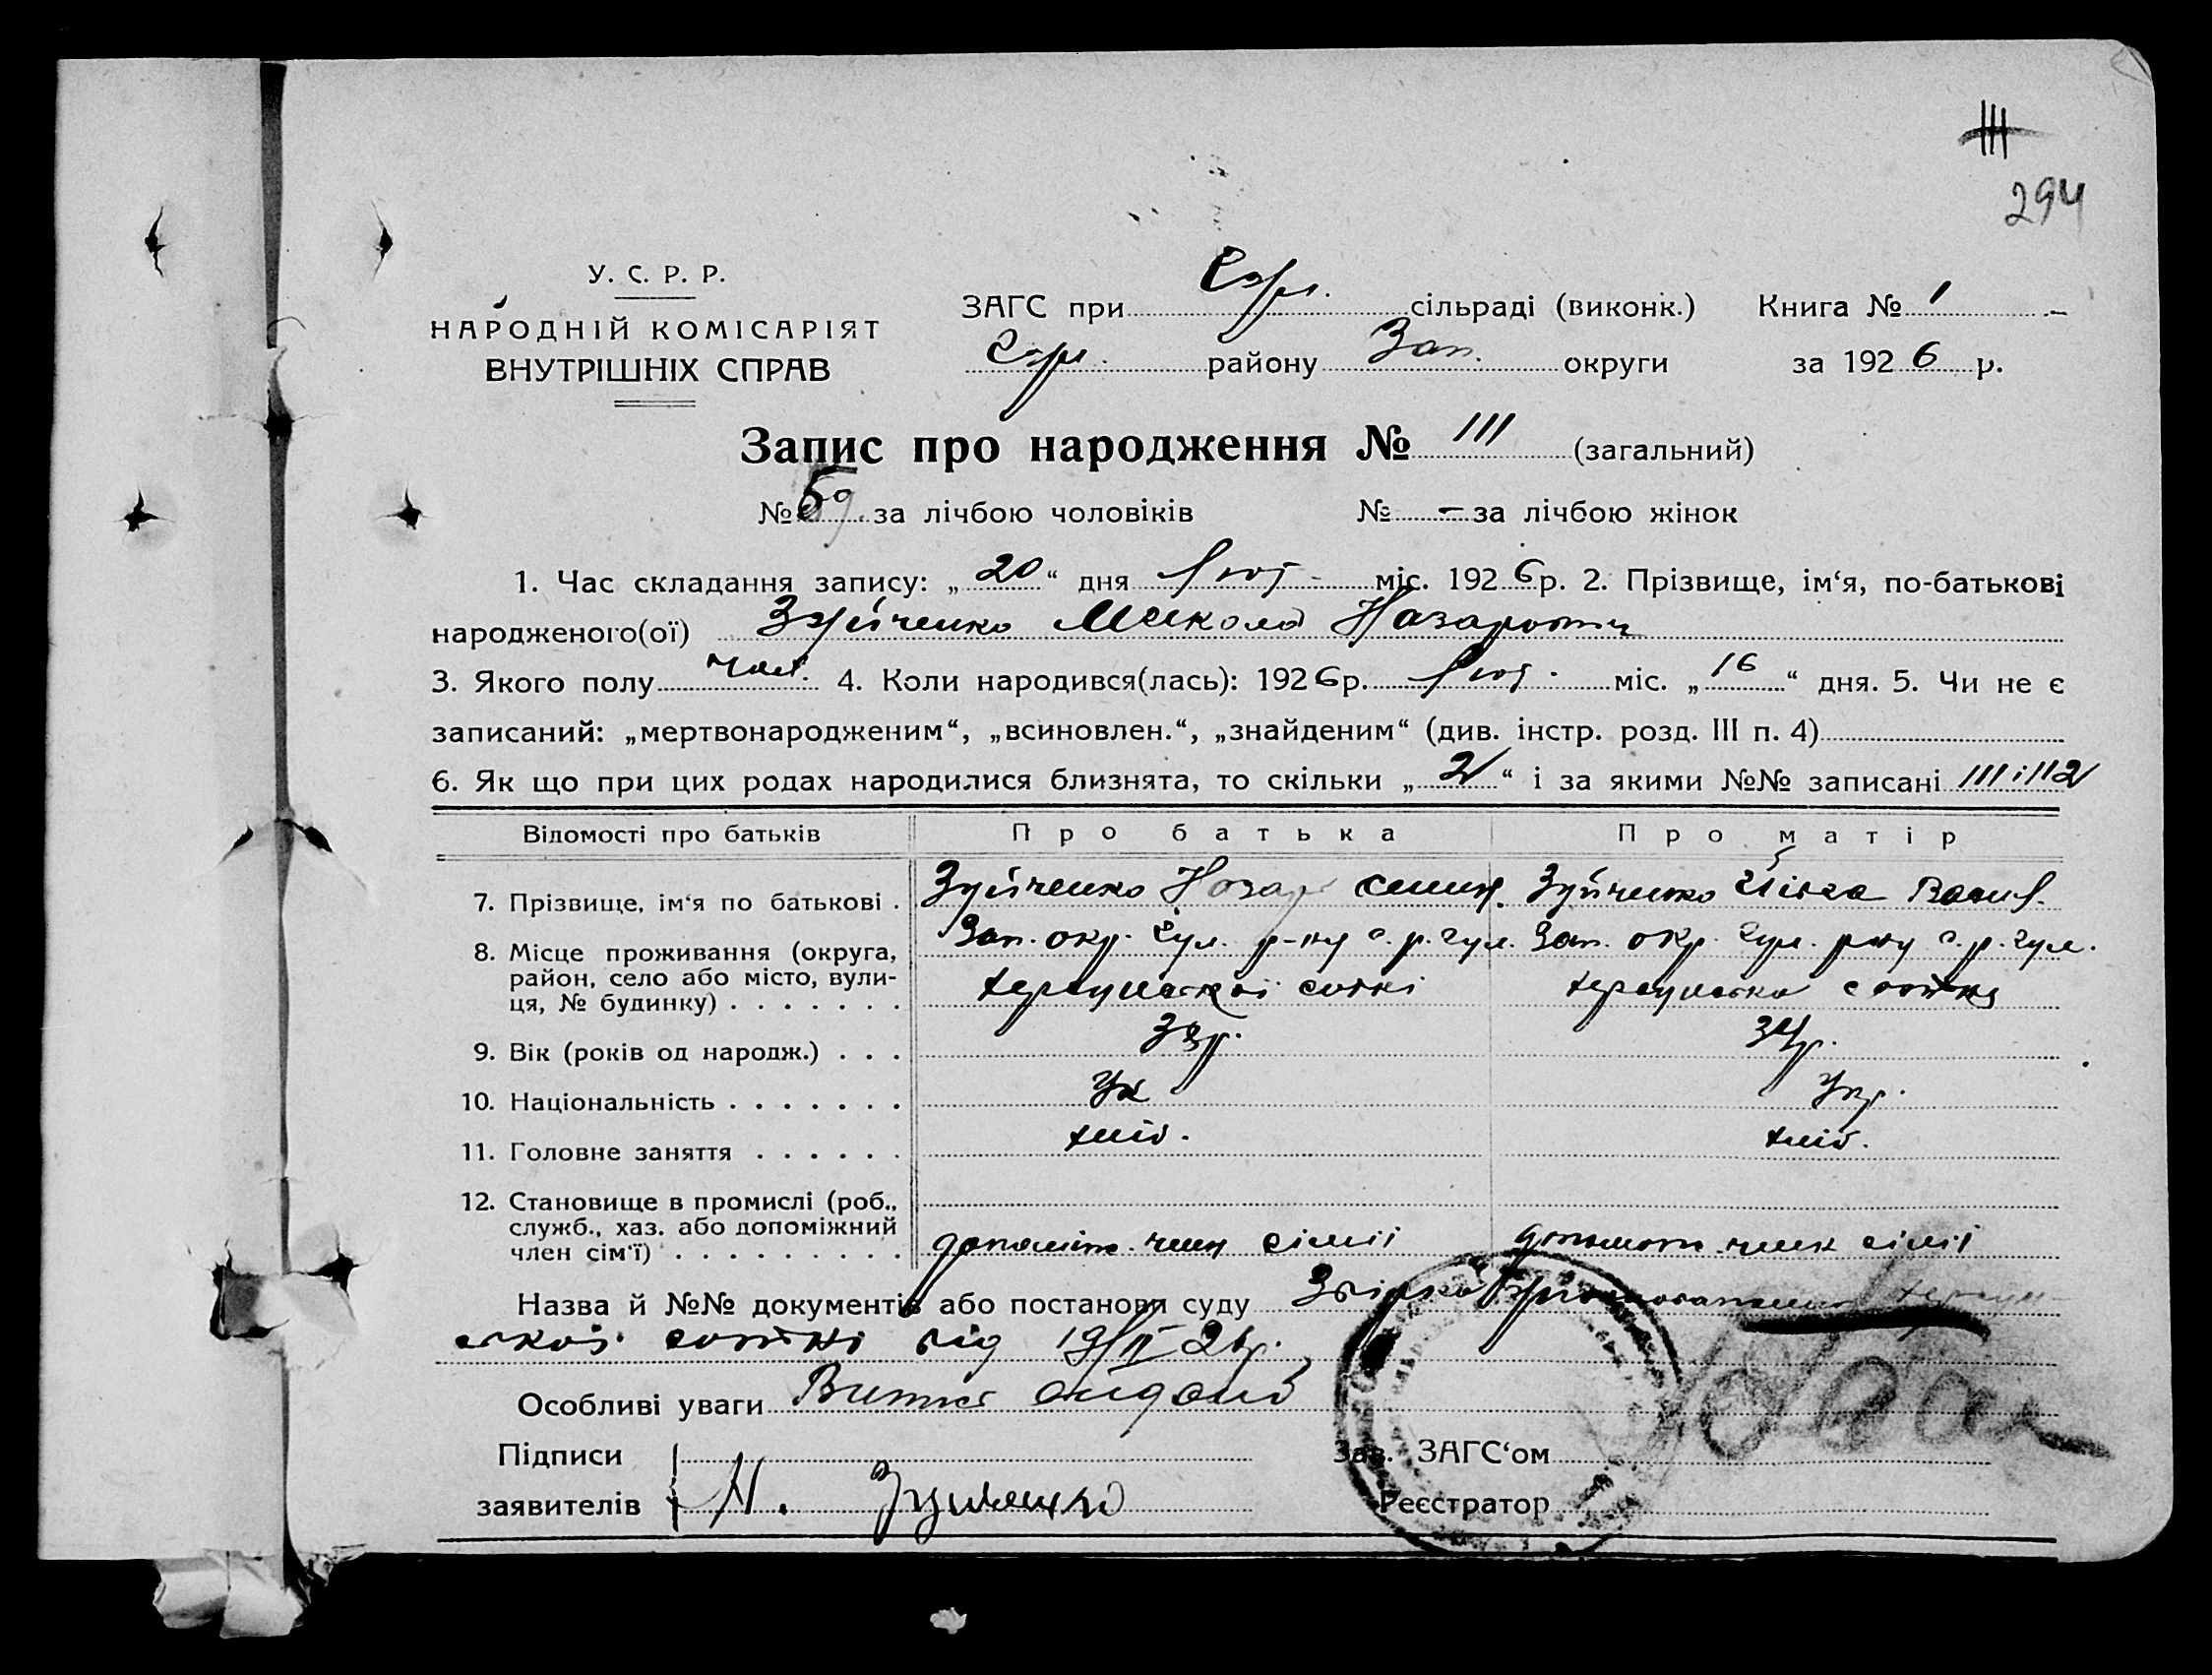 111
294
У. С. Р. Р.
НАРОДНІЙ КОМІСАРІЯТ
ВНУТРІШНІХ СПРАВ
ЗАГС при сільраді (виконк.) Книга № 1
району Зап. округи за 1926 р.
Запис про народження № 111 (загальний)
№ 59 за лічбою чоловіків № – за лічбою жінок
1. Час складання запису: „20“ дня Лют. міс. 1926 р. 2. Прізвище, ім‘я, по-батькові
народженого(ої) Зуйченко Микола Назарович
3. Якого полу чол. 4. Коли народився(лась): 1926р. Лют. міс. „16“ дня. 5. Чи не є
записаний: „мертвонародженим“, „всиновлен.“, „знайденим“ (див. інстр. розд. III п. 4)
6. Як що при цих родах народилися близнята, то скільки „2“ і за якими №№ записані 111 і 112
Відомості про батьків Про батька Про матір
7. Прізвище, ім‘я по батькові . Зуйченко Назар Семен. Зуйченко Васил.
8. Місце проживання (округа, район, село або місто, вулиця, № будинку) Зап. окр. Гул. р-ну с. р. Гул. Зап. окр. Гул. р-ну с. р. Гул.
херсунської сотні сотня
9. Вік (років од народж.) . . . 34р.
10. Національність Ук Укр.
11. Головне заняття хліб. хліб.
12. Становище в промислі (роб., служб., хаз. або допоміжний член сім‘ї) допоміж. член сімії допомож. член сімії
Назва й №№ документів або постанови суду
сотні від 19/II 26р.
Особливі уваги
Підписи
заявителів Н. Зуйченко
Зав. ЗАГС‘ом
Реєстратор